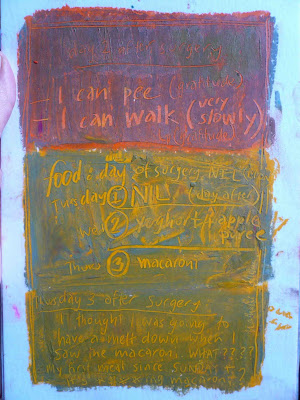 day 2 after surgery
- I can pee (gratitude)
- I can walk (very slowly)
(gratitude)
food: day of surgery NIL
Tuesday ① NIL (day after)
Wed ② yoghurt + apple
puree
Thurs ③ macaroni
Thursday 3 after surgery:
I thought I was going to
have a melt down when I
saw the macaroni. WHAT????
My first meal since SUNDAY
macaroni?